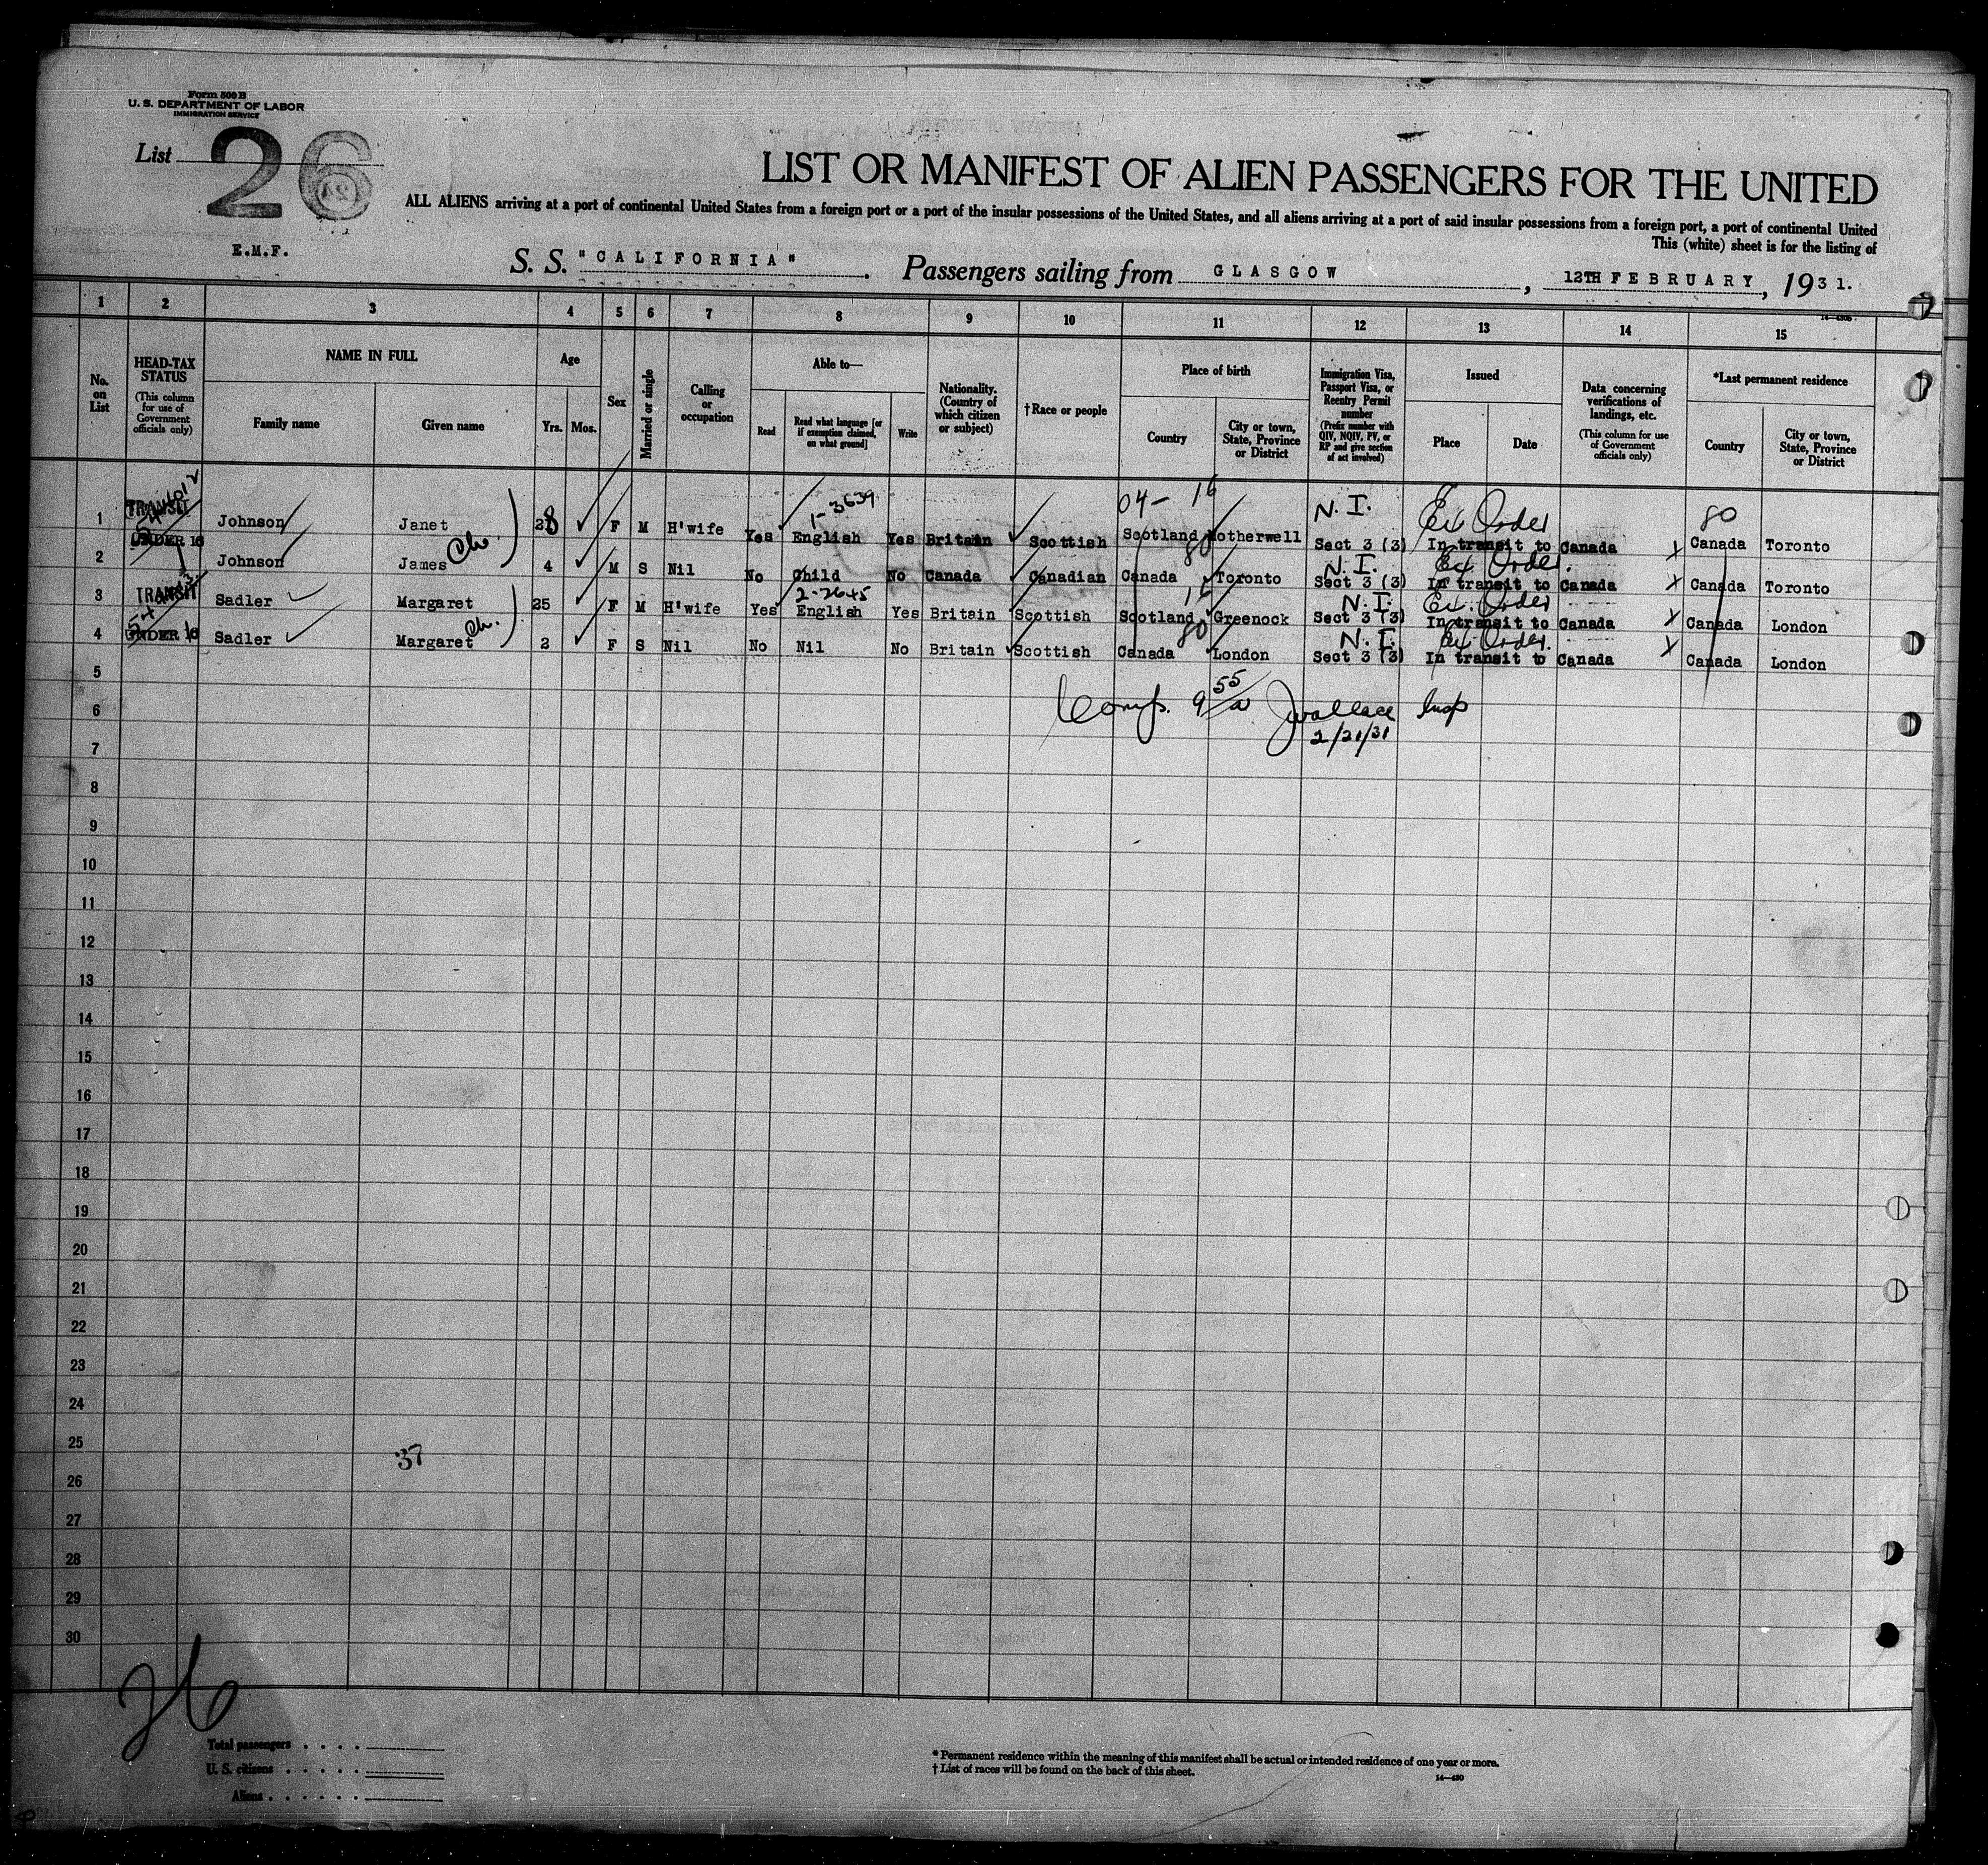 Form 500 B
U. S. DEPARTMENT OF LABOR
IMMIGRATION SERVICE
List 26
LIST OR MANIFEST OF ALIEN PASSENGERS FOR THE UNITED
ALL ALIENS arriving at a port of continental United States from a foreign port or a port of the insular possessions of the United States, and all aliens arriving at a port of said insular possessions from a foreign port, a port of continental United
This (white) sheet is for the listing of
E.M.F.
S. S. "CALIFORNIA". Passengers sailing from GLASGOW, 12TH FEBRUARY, 1931.
1 2 3 4 5 6 7 8 9 10 11 12 13 14 15
No. on List
HEAD-TAX STATUS (This column for use of Government officials only)
NAME IN FULL
Family name Given name
Age
Yrs. Mos.
Sex
Married or single
Calling or occupation
Able to—
Read Read what language [or if exemption claimed, on what ground] Write
Nationality. (Country of which citizen or subject)
†Race or people
Place of birth
Country City or town, State, Province or District
Immigration Visa, Passport Visa, or Reentry Permit number (Prefix number with QIV, NQIV, PV, or RP and give section of act involved)
Issued
Place Date
Data concerning verifications of landings, etc. (This column for use of Government officials only)
*Last permanent residence
Country City or town, State, Province or District
TRANSIT 1-3639 04- 16 N. I. Ex Order 80
1 Johnson Janet 28 F M H'wife Yes English Yes Britain Scottish Scotland Motherwell Sect 3 (3) In transit to Canada Canada Toronto
UNDER 16 Ch. 80 N. I. Ex Order.
2 Johnson James 4 M S Nil No Child No Canada Canadian Canada Toronto Sect 3 (3) In transit to Canada Canada Toronto
TRANSIT 2-2645 16 N. I. Ex. Order
3 Sadler Margaret 25 F M H'wife Yes English Yes Britain Scottish Scotland Greenock Sect 3 (3) In transit to Canada Canada London
UNDER 16 Ch. 80 N. I. Ex Order.
4 Sadler Margaret 2 F S Nil No Nil No Britain Scottish Canada London Sect 3 (3) In transit to Canada Canada London
5
6 Comp. 9 55/a JWallace Insp
2/21/31
7
8
9
10
11
12
13
14
15
16
17
18
19
20
21
22
23
24
25 37
26
27
28
29
30
26
Total passengers
U. S. citizens
Aliens
* Permanent residence within the meaning of this manifest shall be actual or intended residence of one year or more.
† List of races will be found on the back of this sheet.
14—430